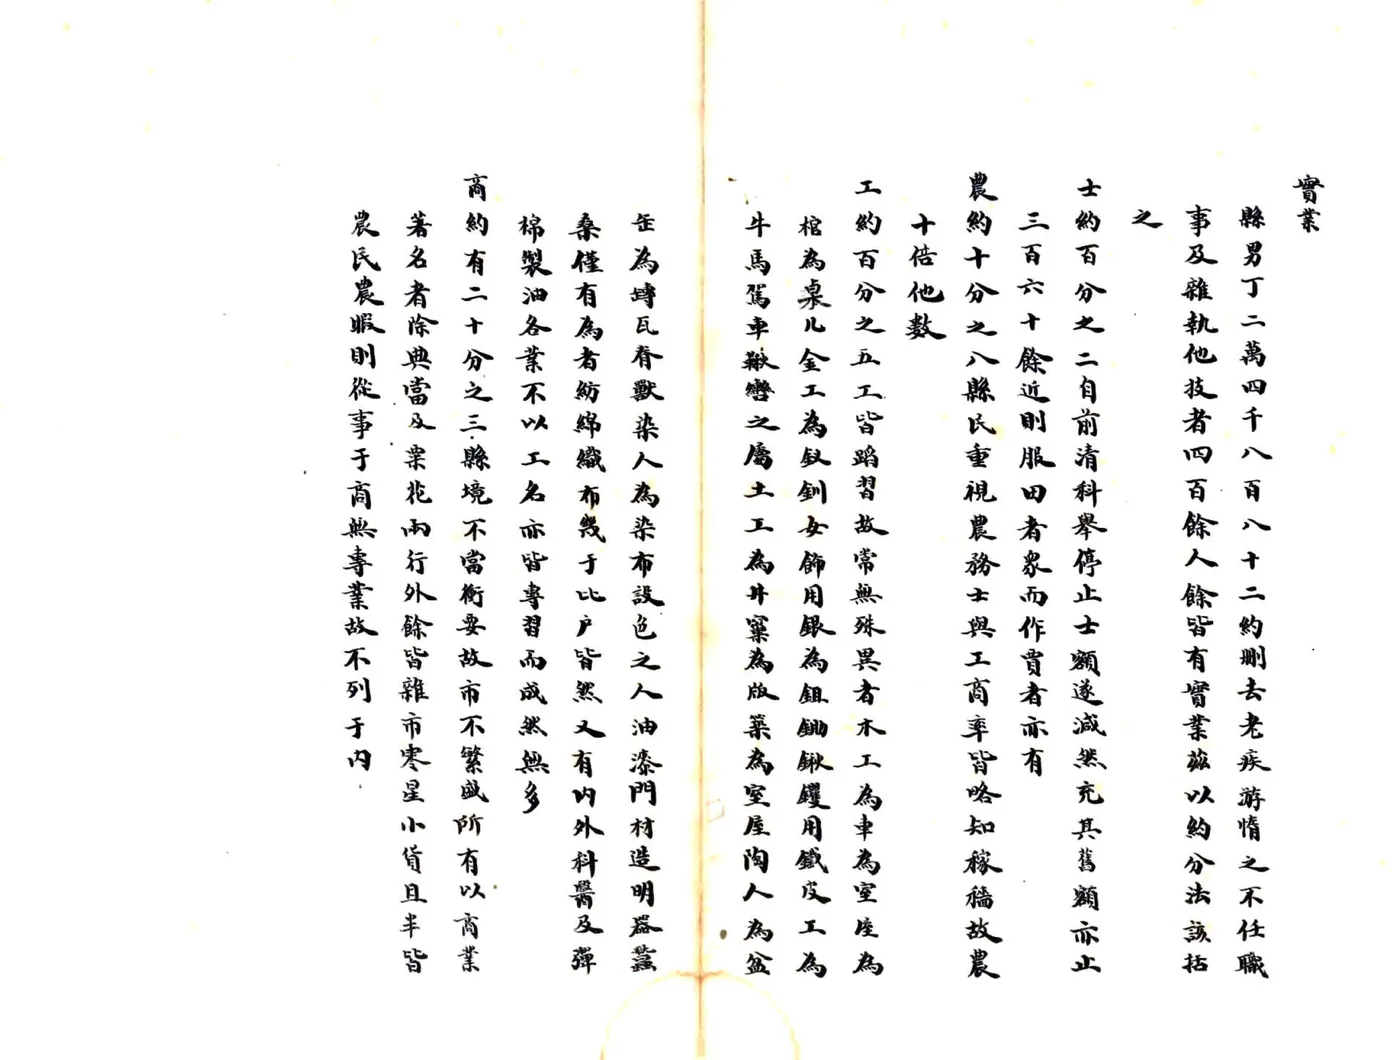 實業
縣男丁二萬四千八百八十二約刪去老疾游惰之不任職
事及雜執他技者四百餘人餘皆有實業茲以約分法該括
之
士約百分之二自前清科舉停止士額遂減然充其舊額亦止
三百六十餘近則服田者衆而作賈者亦有
農約十分之八縣民重視農務士與工商率皆略知稼穡故農
十倍他數
工約百分之五工皆蹈習故常無殊異者木工為車為室座為
棺為桌儿金工為釵釧女飾用銀為鉏鋤鍬钁用鐵皮工為
牛馬駕車鞦轡之屬土工為井窰為版築為室屋陶人為盆
缶為磚瓦脊獸染人為染布設色之人油漆門材造明器蠶
桑僅有為者紡綿織布幾于比户皆然又有內外科醫及彈
棉製油各業不以工名亦皆專習而成然無多
商約有二十分之三縣境不當衝要故市不繁盛所有以商業
著名者除典當及棗花兩行外餘皆雜市寒星小貨且半皆
農民農暇則從事于商無專業故不列于内